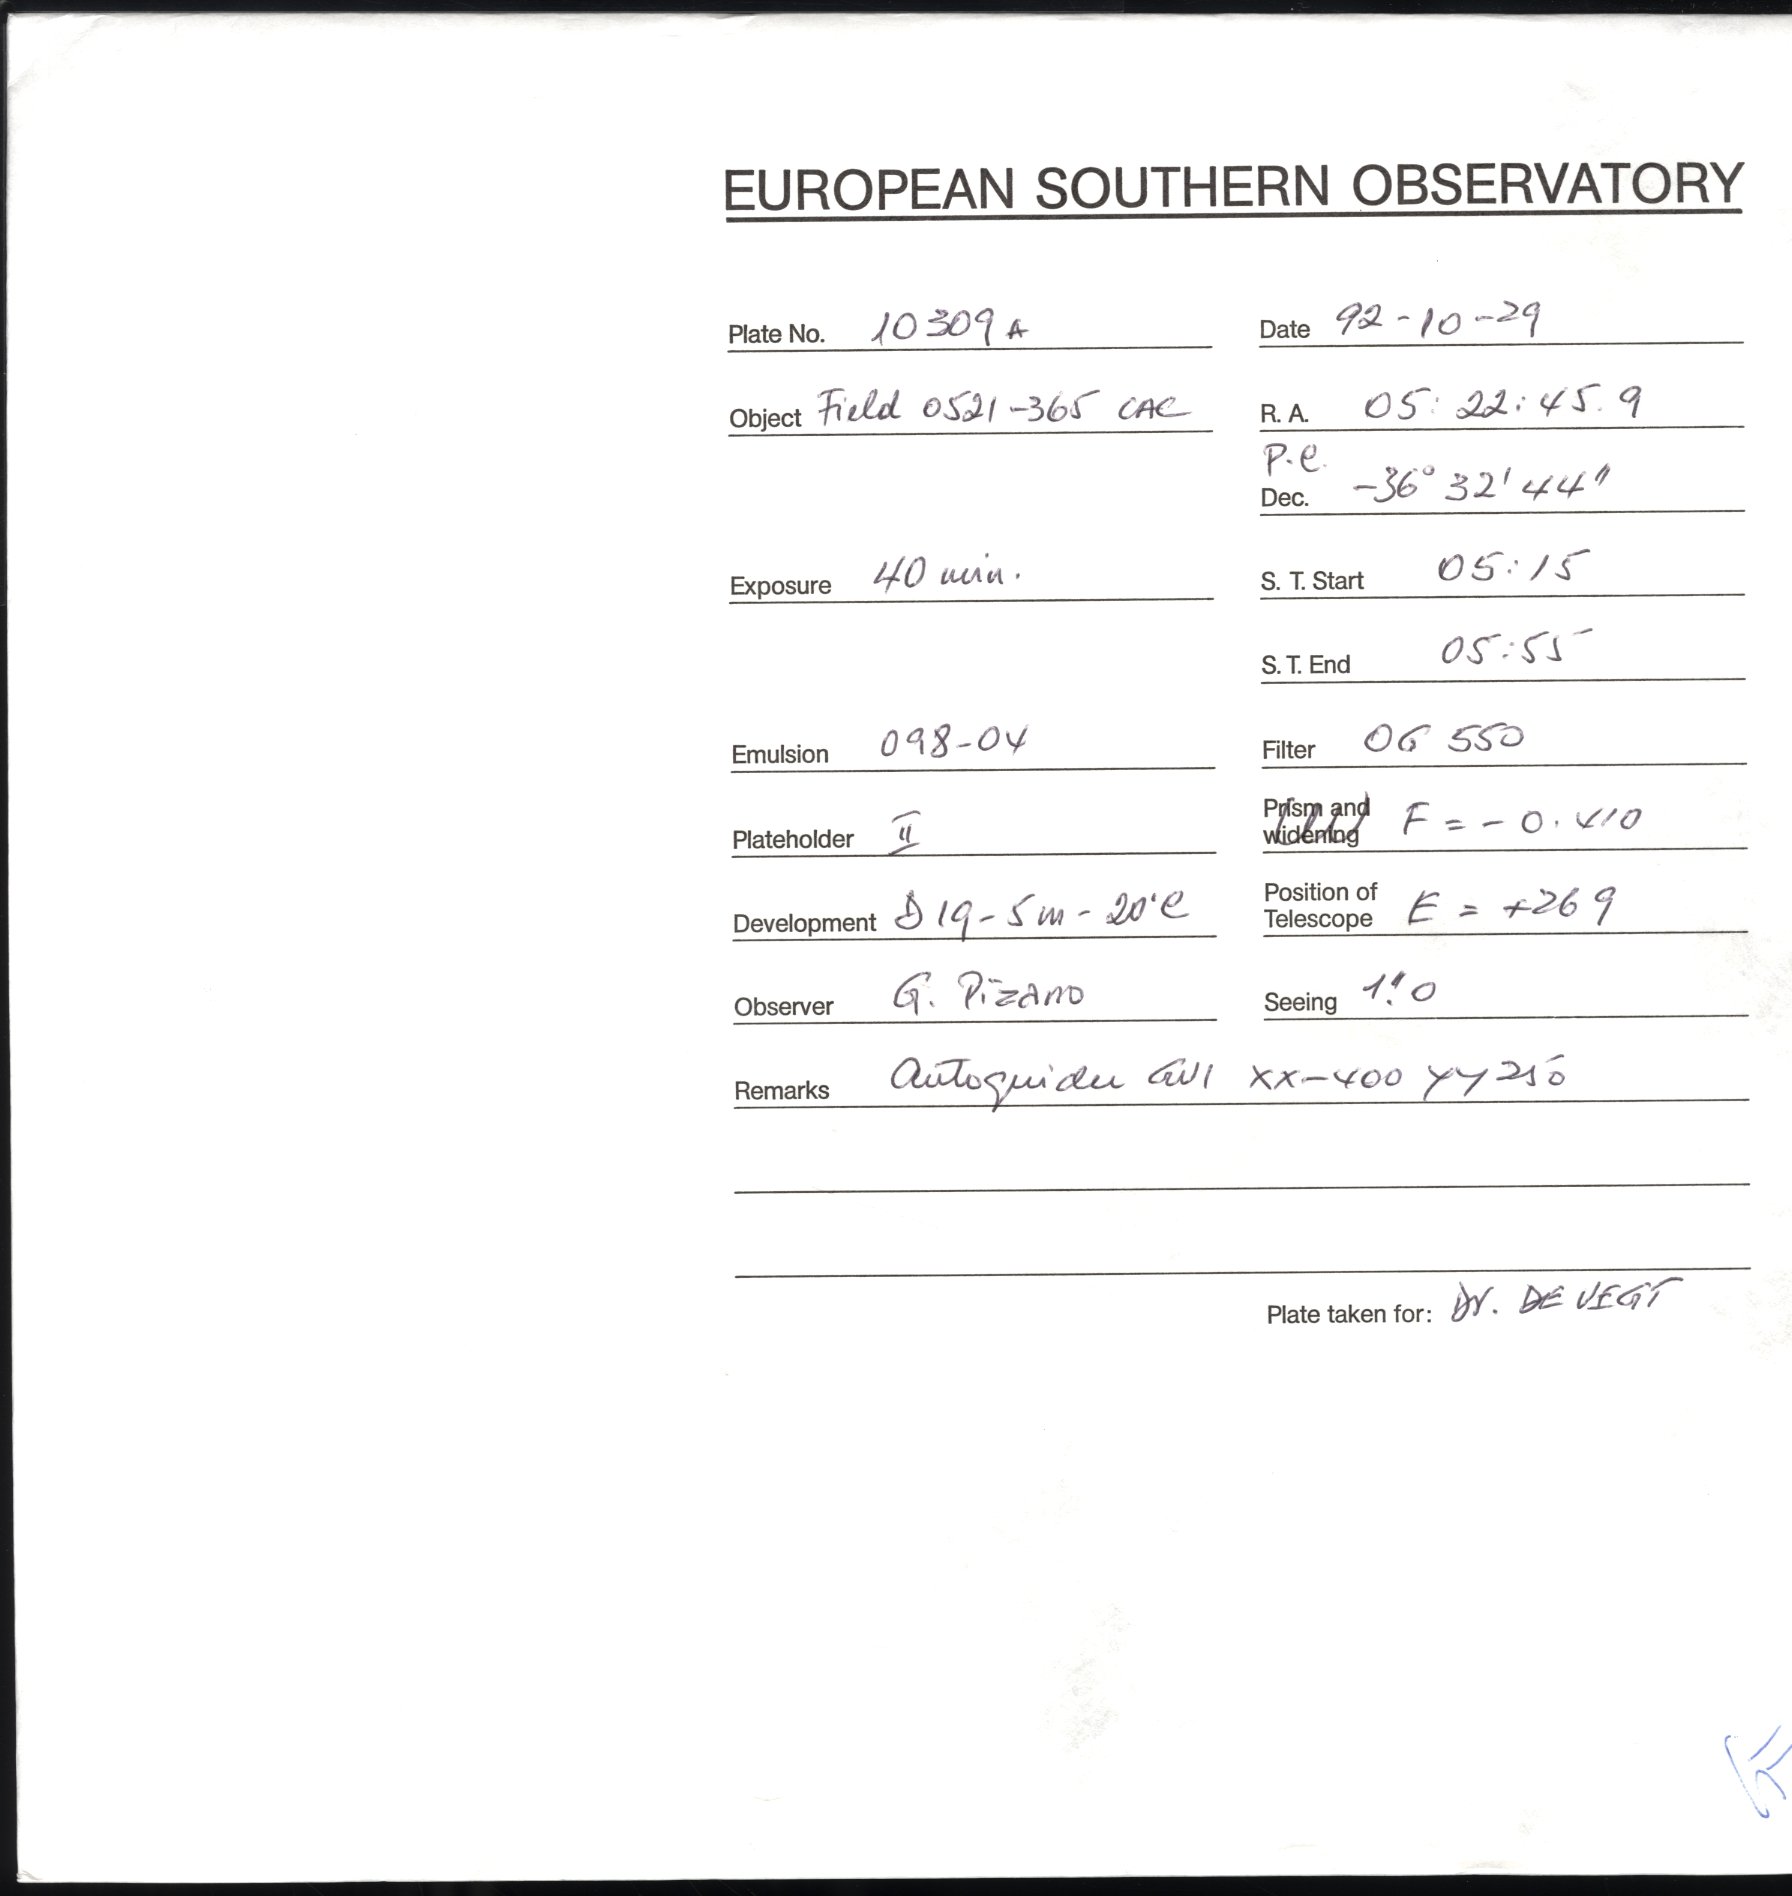 EUROPEAN SOUTHERN OBSERVATORY
Plate No. 10309 A Date 92-10-29
Object Field 0521-365 CAC R. A. 05: 22: 45. 9
P.C.
Dec. -36° 32' 44"
Exposure 40 min. S. T. Start 05:15
S. T. End 05:55
Emulsion 098-04 Filter OG 550
Plateholder II Prism and widening F = - 0.410
Development D 19 - 5 m - 20°C Position of Telescope E = +269
Observer G. Pizarro Seeing 1".0
Remarks Autoguider XX-400 YY 250
Plate taken for: Dr. DE VEGT